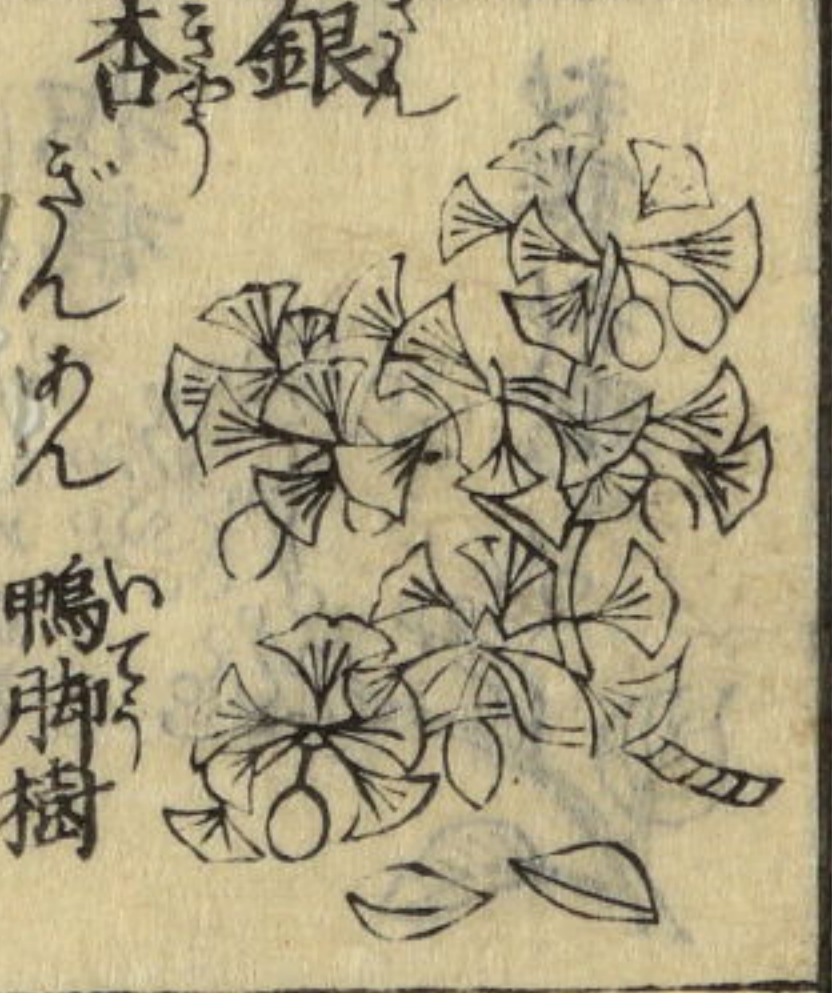 銀杏
ぎんきやう
ぎんあん
鴨脚樹
いてう